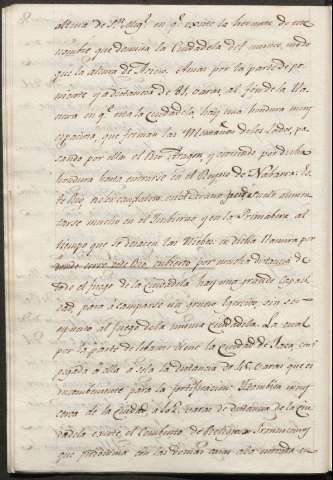 altura de Sn. Migl. en q.e existe la hermita de este
nombre que domina la Ciudadela del mismo modo
que la altura de Aseos. A mas por la parte de po-
niente y a distancia de 84 varas, al fin de la lla-
nura en q.e esta la Ciudadela, hay una hondura muy
espaciosa, que forman las Montañas de los lados, pa-
sando por ella el Rio Aragon, y corriendo por dicha
hondura hasta entrarse en el Reyno de Navarra: Es-
te Rio, no es caudaloso en el Verano pero suele aumen-
tarse mucho en el Imbierno, y en la Primabera al
tiempo que se deshacen las Niebes: en dicha llanura por
donde corre este Rio, cubierto por mucha distancia de
todo el fuego de la Ciudadela hay una grande capaci-
dad para acamparse un grueso Exercito, sin ser
ofendido al fuego de la misma Ciudadela. La cual
por la parte de lebante tiene la Ciudad de Jaca, tan
pegada a ella a sola la distancia de 45 varas que es
incombeniente para la fortificacion: Tambien muy
cerca de la Ciudad, a 102 varas de distancia de la Ciu-
dadela existe el Combento de Religiosos Franciscanos
que predomina con las demas casas a la entrada en